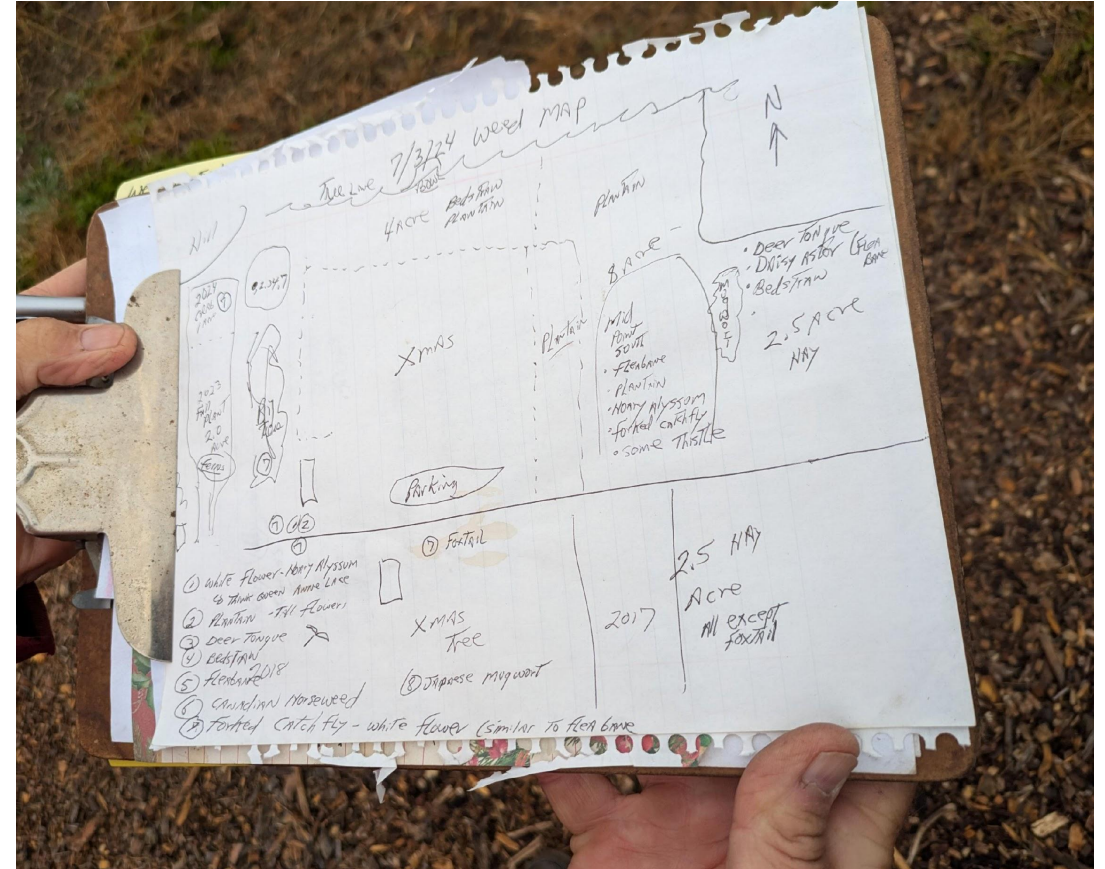 7/3/24 Weed MAP
N
Tree Line
4 Acre
Bedstraw
PLANTAIN
PLANTAIN
8 Acre
Hill
2024
1,2,3,4,7
• Deer Tongue
• Daisy Aster (Flea
BANE
• Bedstraw
2.5 Acre
HAY
XMAS
PLANTAIN
Mid
Point
South
• Fleabane
• PLANTAIN
• Hoary Alyssum
• Forked catchfly
• Some Thistle
2023
Fall
PLANT
2.0
Acre
7
Parking
7
2
7
7 FoxTAIL
1 White Flower - Hoary Alyssum
THINK QUEEN ANNE LACE
2 PLANTAIN - TALL Flowers
3 Deer Tongue
4 BedsTRAW
5 Fleabane 2018
6 CANADIAN Horseweed
7 Forked Catchfly - white flower (similar To Flea bane
XMAS
Tree
8 JAPAnese mugwort
2017
2.5 HAY
Acre
All except
foxtail